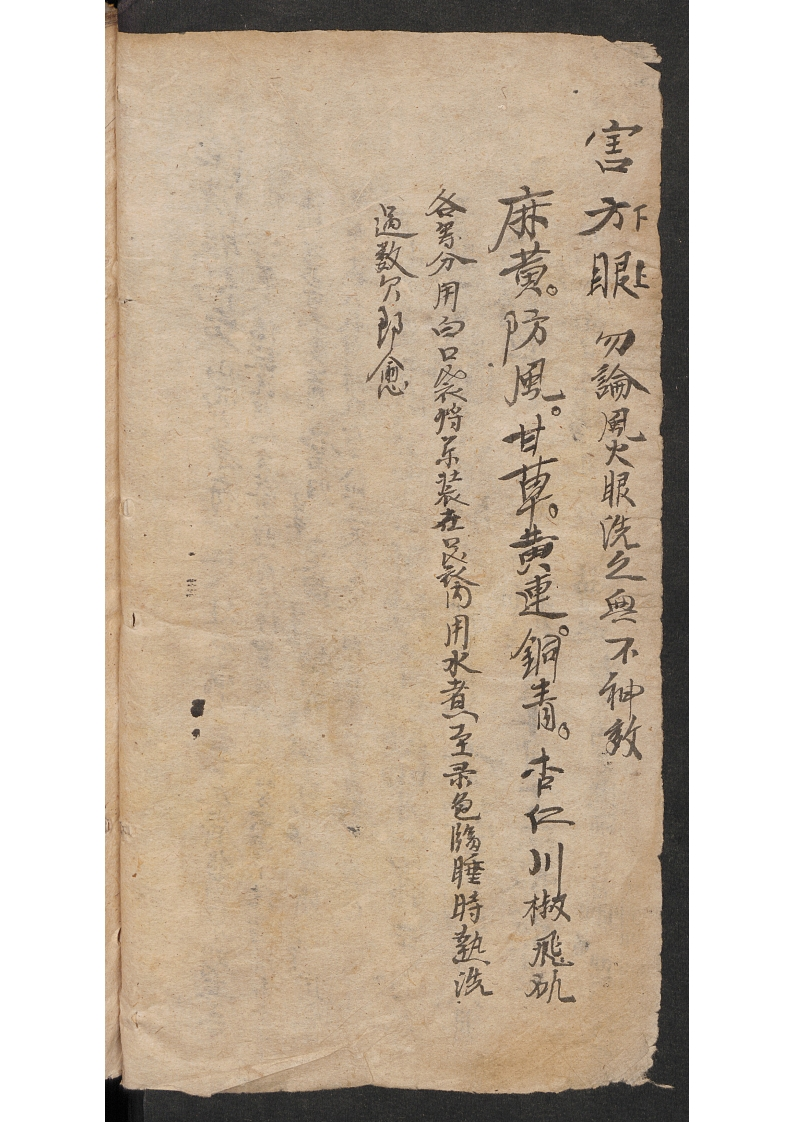 害方下眼上勿論風火眼洗之無不神效
麻黄。防風。甘草。黄連。銅青。杏仁川椒飛矾
各等分用白口袋將药装在口袋內用水煮至录色臨睡時熱洗
過数欠即愈